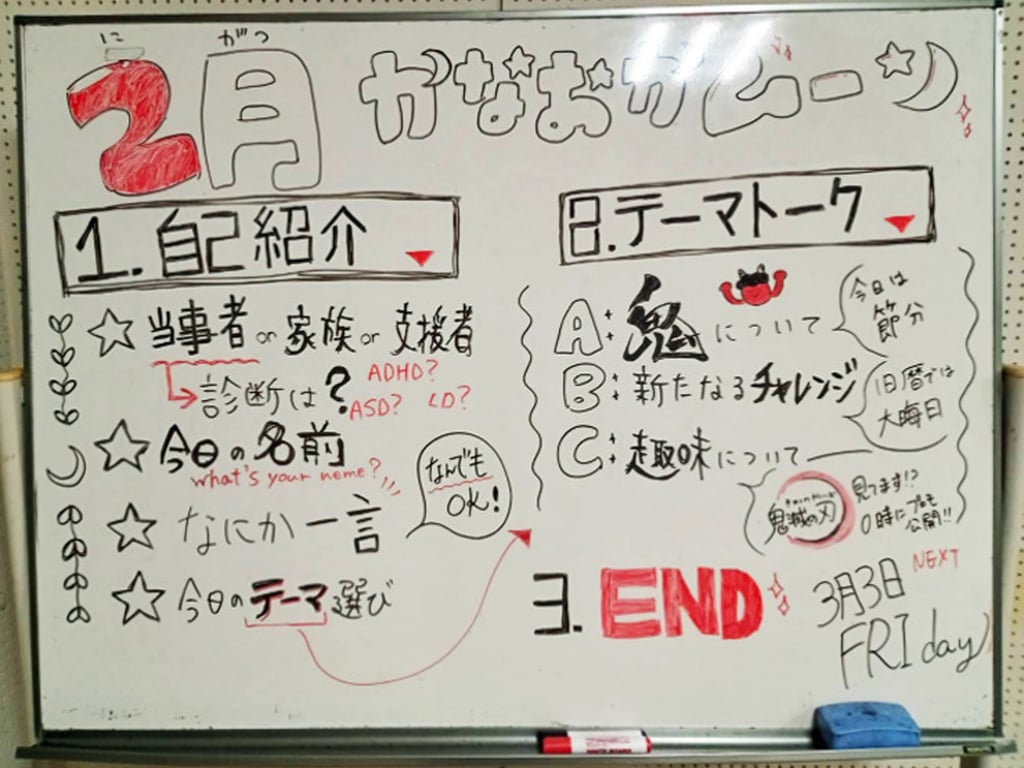 に がつ
2月 かなおかムーン
1. 自己紹介
☆ 当事者 or 家族 or 支援者
診断は? ADHD?
ASD? LD?
☆ 今日の名前
what's your neme?
☆ なにか一言
なんでも
OK!
☆ 今日のテーマ選び
2. テーマトーク
A: 鬼について
今日は
節分
B: 新たなるチャレンジ
旧暦では
大晦日
C: 趣味について
鬼滅の刃
見てます!?
0時に
公開!!
3. END
NEXT
3月3日
FRIday
WHITE BOARD